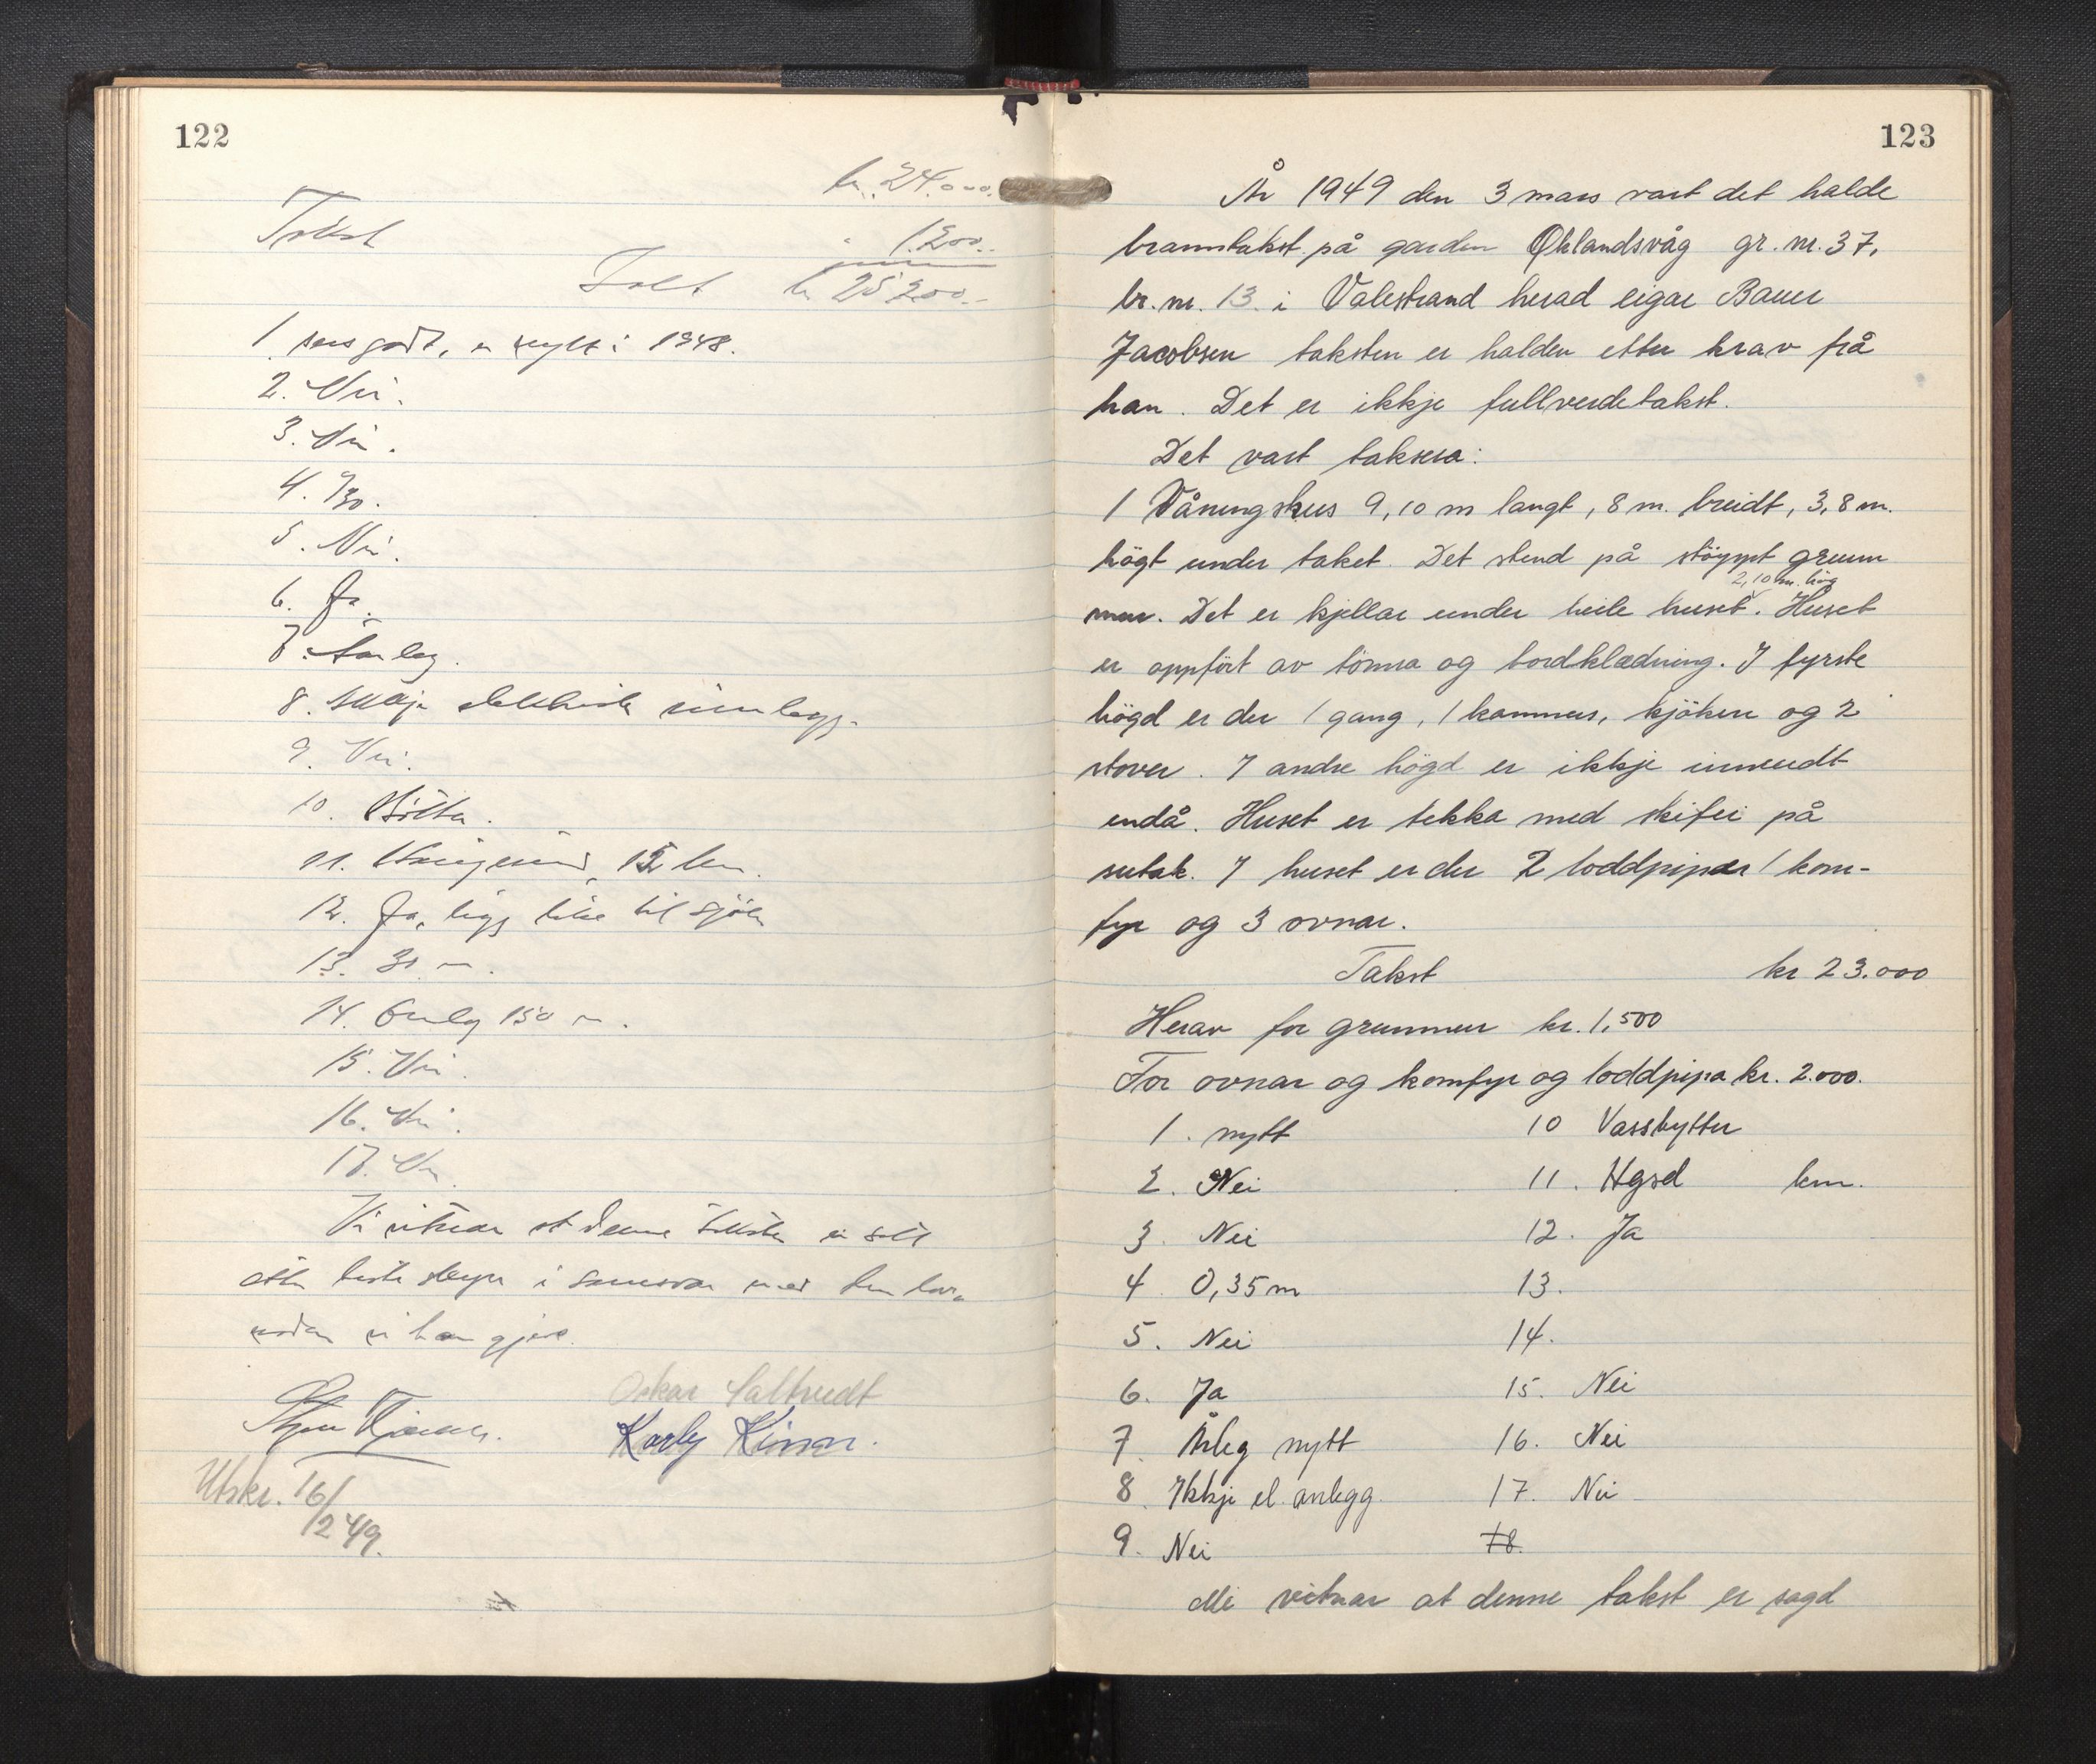 122
kr. 24.000.
Takst " 1200.-
Ialt kr 25200.-
1. sers godt, er nytt i 1948.
2. Nei.
3. Nei.
4.
5. Nei.
6. Ja.
7. Årleg.
8. Ikkje elektrisk innlegg.
9. Nei.
10. Bøtter.
11. Haugesund, 12 km.
12. Ja, ligg like til sjøen
13. 30 m.
14. 150 m.
15. Nei.
16. Nei.
17. Nei.
Vi vitnar at denne taksten er sett
etter beste skjøn i samsvar med den lov-
nad vi har gjeve.
Oskar Saltvedt
Karly
Utskr. 16/
12 49.
123
År 1949 den 3 mars vart det halde
branntakst på garden Øklandsvåg gr. nr. 37,
br. nr. 13 i Valestrand herad eigar Baur
Jacobsen taksten er halden etter krav frå
han. Det er ikkje fullverdetakst.
Det vart taksera:
1 Våningshus 9,10 m langt, 8 m. breidt, 3,8 m.
högt under taket. Det stend på stöypt grunn
2,10 m. hög
mur. Det er kjellar under heile huset. Huset
er oppfört av tömra og bordklædning. I fyrste
högd er der 1 gang, 1 kammers, kjöken og 2
stover. I andre högd er ikkje innreidt
endå. Huset er tekka med skifer på
sutak. I huset er der 2 loddpipar 1 kom-
fyr og 3 ovnar.
Takst kr 23.000
Herav for grunnmur kr. 1,500
For ovnar og komfyr og loddpipa kr. 2.000.
1. nytt 10 Vassbytter
2. Nei 11. Hgsd km.
3. Nei 12. Ja
4 0,35 m 13.
5. Nei 14.
6. Ja 15. Nei
7. Årleg nytt 16. Nei
8. Ikkje el. anlegg. 17. Nei
9. Nei 18.
Me vitnar at denne takst er sagd